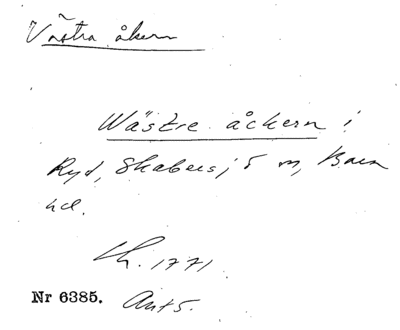 Västra åkern
Wästre åckern i
Ryd, Skabersj. s n, Bara
hd.
Lh. 1771
Nr 6385. Ant 5.